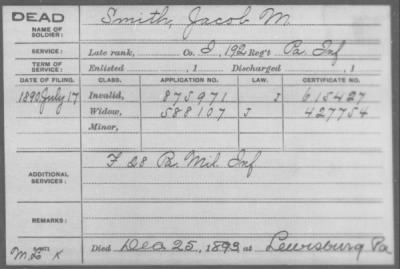 DEAD
NAME OF SOLDIER: Smith, Jacob M.
SERVICE: Late rank, Co. I, 192 Reg't Pa. Inf
TERM OF SERVICE: Enlisted , 1 Discharged , 1
DATE OF FILING. CLASS. APPLICATION NO. LAW. CERTIFICATE NO.
1890 July 17 Invalid, 875971 J 615427
Widow, 588107 J 427754
Minor,
ADDITIONAL SERVICES: F 28 Pa. Mil Inf
REMARKS:
Died Dec 25, 1893 at Lewisburg Pa